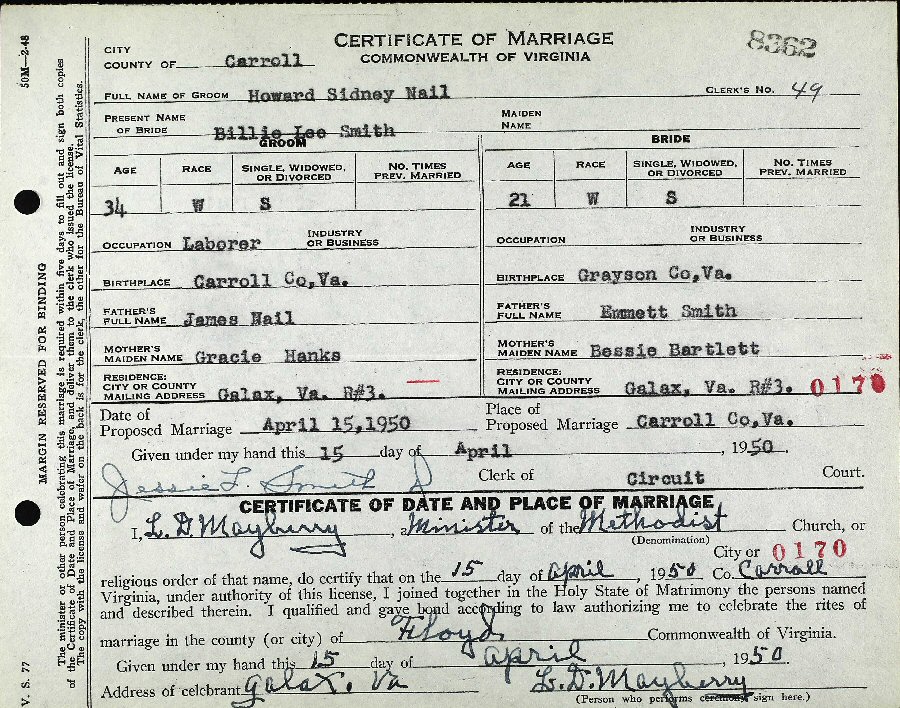 CERTIFICATE OF MARRIAGE
COMMONWEALTH OF VIRGINIA
8362
CITY
COUNTY OF Carroll
FULL NAME OF GROOM Howard Sidney Nail CLERK'S NO. 49
PRESENT NAME OF BRIDE Billie Lee Smith MAIDEN NAME
GROOM BRIDE
AGE RACE SINGLE, WIDOWED, OR DIVORCED NO. TIMES PREV. MARRIED AGE RACE SINGLE, WIDOWED, OR DIVORCED NO. TIMES PREV. MARRIED
34 W S 21 W S
OCCUPATION Laborer INDUSTRY OR BUSINESS OCCUPATION INDUSTRY OR BUSINESS
BIRTHPLACE Carroll Co,Va. BIRTHPLACE Grayson Co,Va.
FATHER'S FULL NAME James Nail FATHER'S FULL NAME Emmett Smith
MOTHER'S MAIDEN NAME Gracie Hanks MOTHER'S MAIDEN NAME Bessie Bartlett
RESIDENCE: CITY OR COUNTY MAILING ADDRESS Galax, Va. R#3. RESIDENCE: CITY OR COUNTY MAILING ADDRESS Galax, Va. R#3. 0170
Date of Proposed Marriage April 15,1950 Place of Proposed Marriage Carroll Co,Va.
Given under my hand this 15 day of April, 1950.
Jessie L. Smith Clerk of Circuit Court.
CERTIFICATE OF DATE AND PLACE OF MARRIAGE
I, L. D. Mayberry, a Minister of the Methodist Church, or
(Denomination)
City or 0170
religious order of that name, do certify that on the 15 day of April, 1950 Co. Carroll
Virginia, under authority of this license, I joined together in the Holy State of Matrimony the persons named
and described therein. I qualified and gave bond according to law authorizing me to celebrate the rites of
marriage in the county (or city) of Floyd Commonwealth of Virginia.
Given under my hand this 15 day of April, 1950.
Address of celebrant Galax, Va L. D. Mayberry
(Person who performs ceremony sign here.)
50M—2-48
MARGIN RESERVED FOR BINDING
V. S. 77
The minister or other person celebrating this marriage is required within five days to fill out and sign both copies
of the Certificate of Date and Place of Marriage, and deliver them to the clerk who issued the license.
The copy with the license and waiver on the back is for the clerk, the other for the Bureau of Vital Statistics.